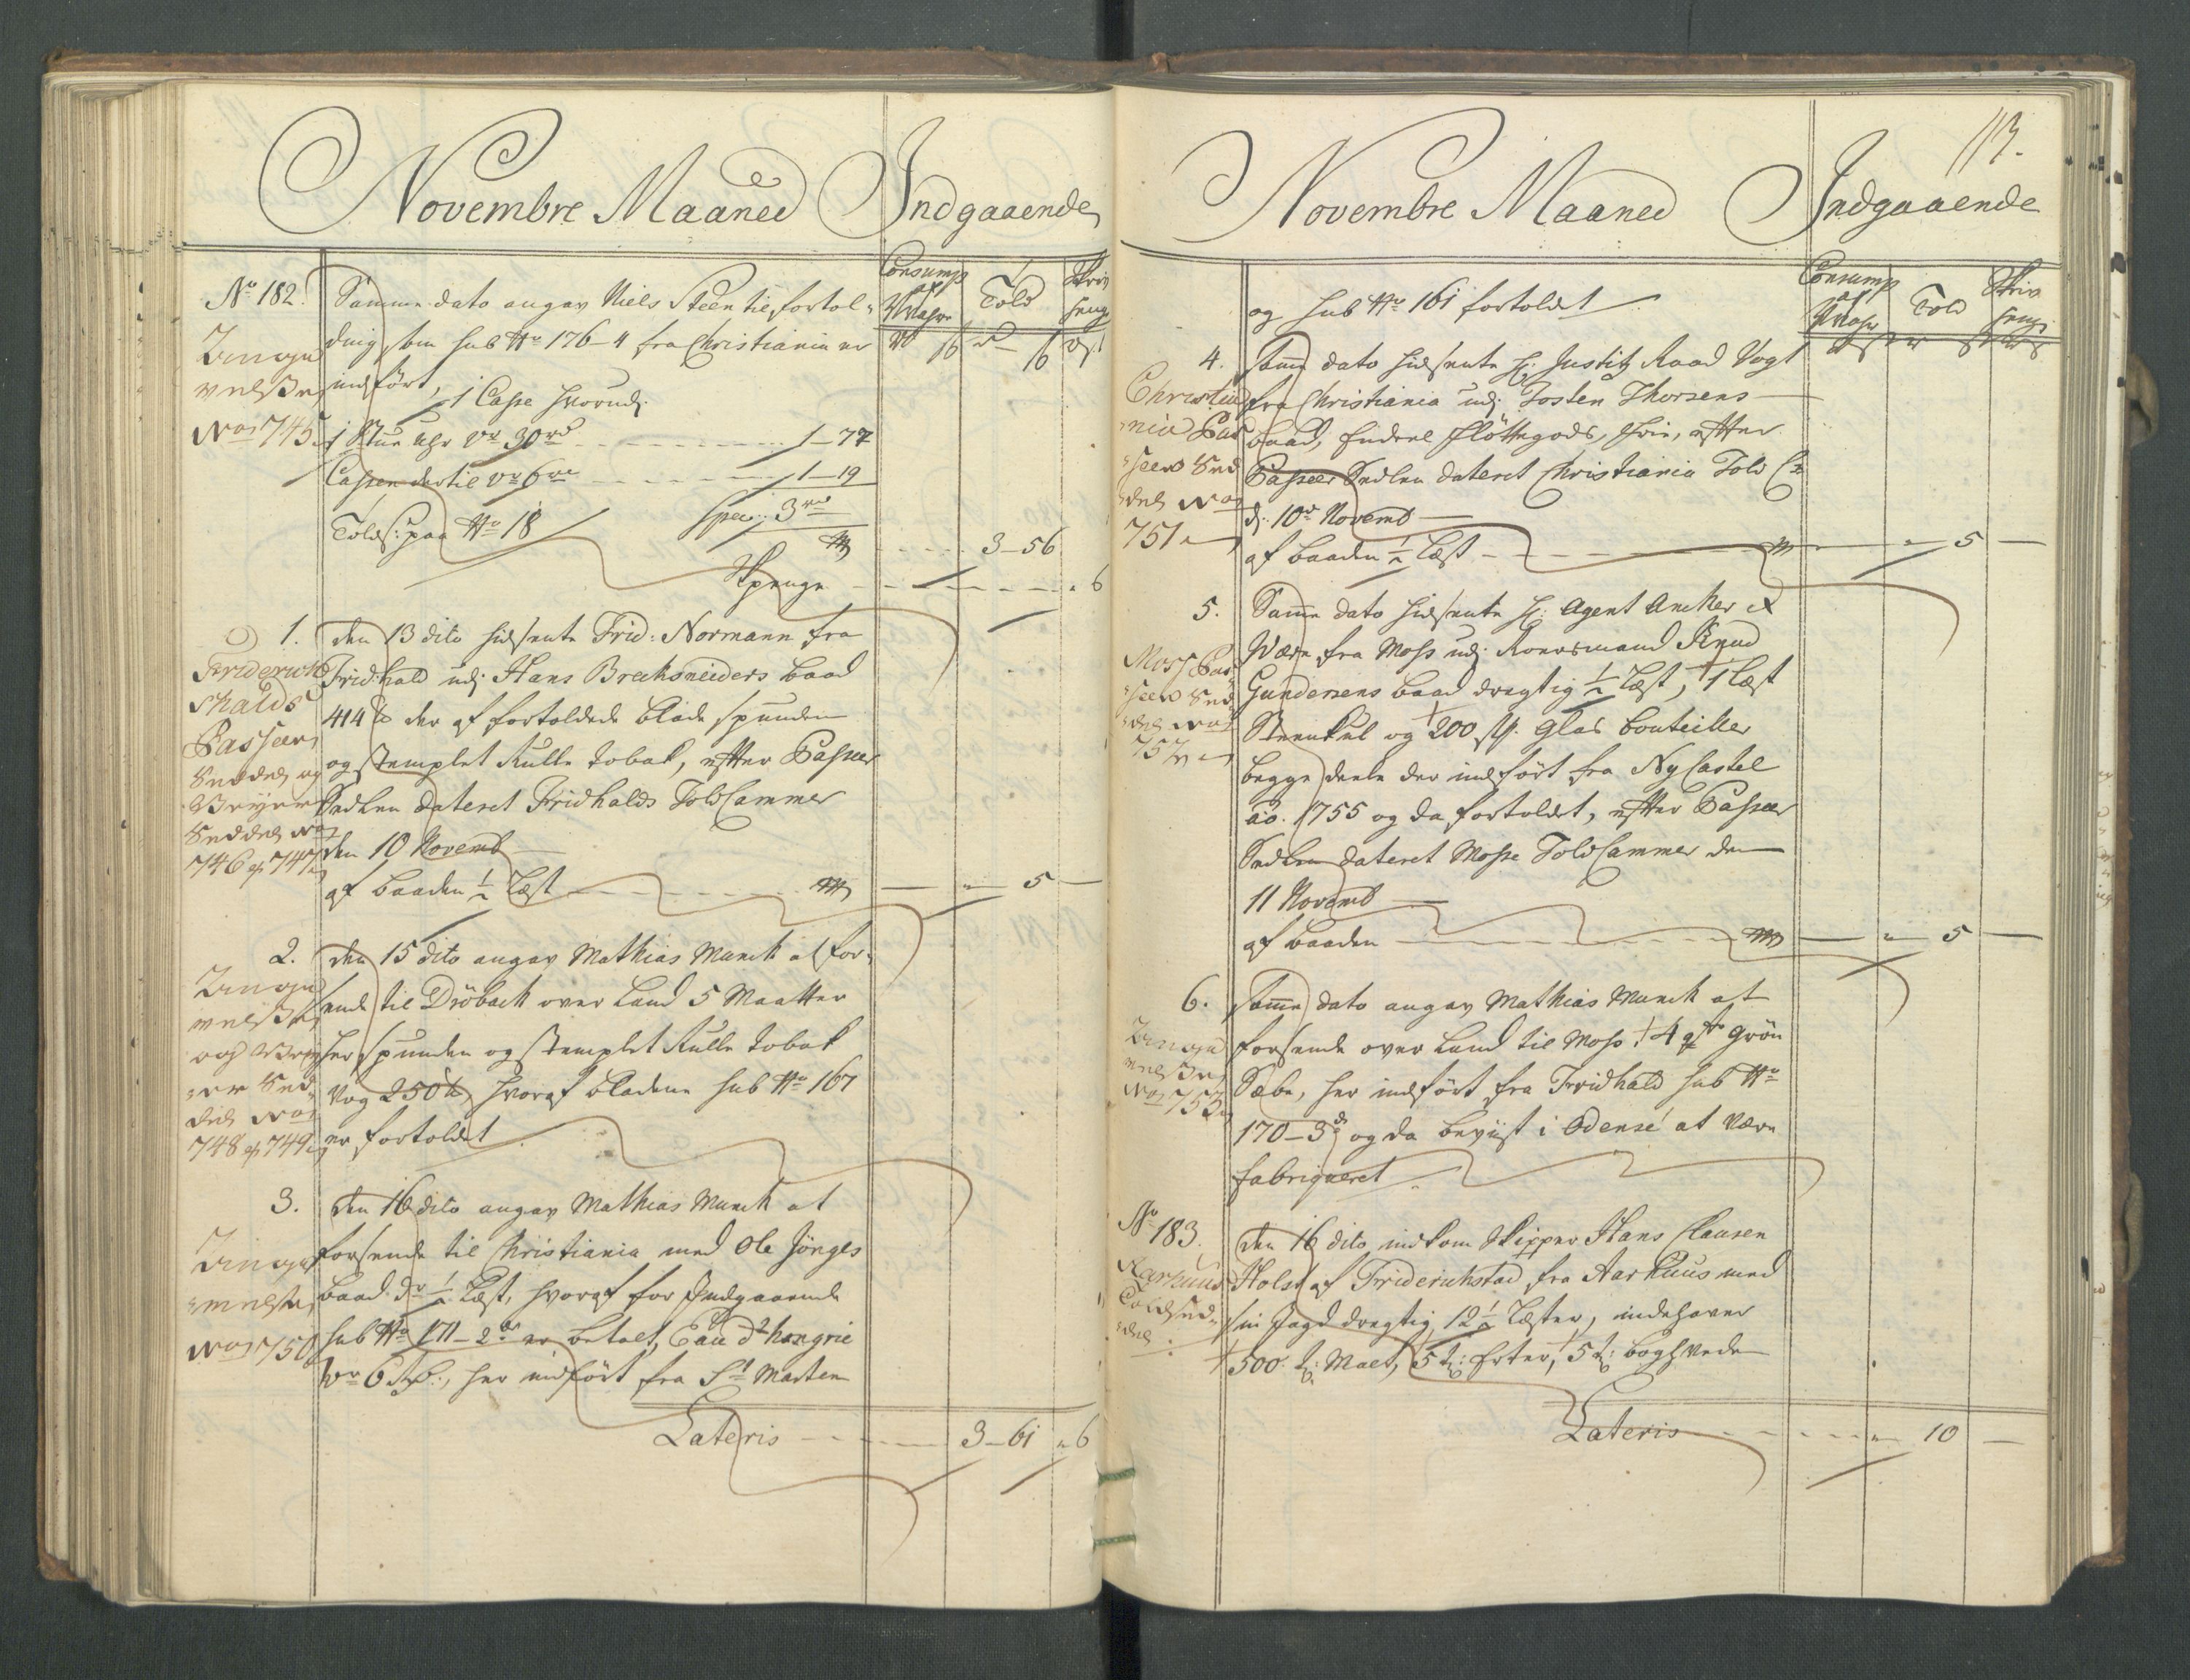 Novembre Maaned Indgaaende
Consump
Told
No 182.
Samme dato angav Niels Steen til fortol-
ding, som sub No 176-4 fra Christiania er
indført,
1 Casse hvorudj
Angi
velse
No 745
1 Stue Uhr vr 30 rd 1-77
Cassen dertil vr 6 rd 1-19
Tolds: paa No 18
3 rd
3-56
Spenge
6
1.
Friderich
shalds
Passeer
Seddel og
Veyer
Seddel No
746 og 747
den 13 dito hidsente Frid: Normann fra
Fridhald udj Hans Brecksneiders baad
414 lb der af fortoldede blade spunden
og stemplet Rulle tobak, efter Passeer
Sedlen dateret Fridhalds ToldCammer
den 10 Novemb
af baaden ½ Læst
5
2.
Angi
velse
og Vey
er Sed-
del No
748 og 749
den 15 dito angav Mathias Munck at for-
sende til Dröback over Land 5 Maatter
her spunden og stemplet Rulle tobak
vog 250 lb, hvoraf bladene sub No 167
er fortoldet
3.
Angi
velse
No 750
den 16 dito angav Mathias Munck at
forsende til Christiania med Ole Jönges
baad dr ½ Læst, hvoraf for Indgaaende
sub No 171-2 er betalt, Eau d'hongrie
vr 6 her indført fra St Marten
Lateris 3-61 6
113.
Novembre Maaned Indgaaende
Consump
Told
og sub No 161 fortoldet
4.
Christia
nia Pas
seer Sed
del No
751
Samme dato hidsente Hr Justitz Raad Vogt
fra Christiania udj Josten Thorsens
baad, endeel flöttegods, frie, efter
Passeer Sedlen dateret Christiania Told C
d. 10 Novemb
af baaden ½ Læst
5
5.
Moss Pas
seer Sed
del No
752
Samme dato hidsente Hr Agent Ancker et
Wærn fra Moss udj Roersmand Knud
Gundersens baad drægtig ½ Læst, 1 Læst
Steenkul og 200 st. Glas bouteiller
begge deele der indført fra NyCastel
ao. 1755 og da fortoldet, efter Passeer
Sedlen dateret Mosse ToldCammer den
11 Novemb
af baaden
5
6.
Angi
velse
No 753
Samme dato angav Mathias Munck at
forsende over Land til Moss 4 Grön
Sæbe, her indført fra Fridhald sub No
170-3 og da beviist i Odense at være
fabriqueret
No 183.
Aarhuus
Toldsed-
del
den 16 dito indkom Skipper Hans Clausen
Holst af Friderichstad fra Aarhuus med
sin Jagd drægtig 12½ Læster, indehaver
500 t: Malt, 5 t: Erter, 5 t: boghvede
Lateris 10